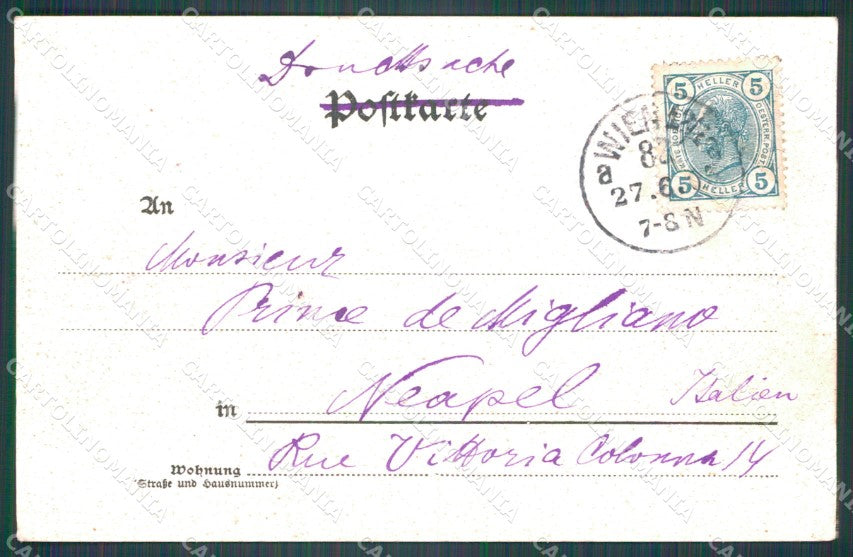 Drucksache
Postkarte
5 HELLER 5
OESTERR. POST
5 HELLER 5
a WIEN
27.6
7-8 N
An
Monsieur
Prince de Migliano
in Neapel Italien
Rue Vittoria Colonna 14
Wohnung
(Straße und Hausnummer)
CARTOLINOMANIA